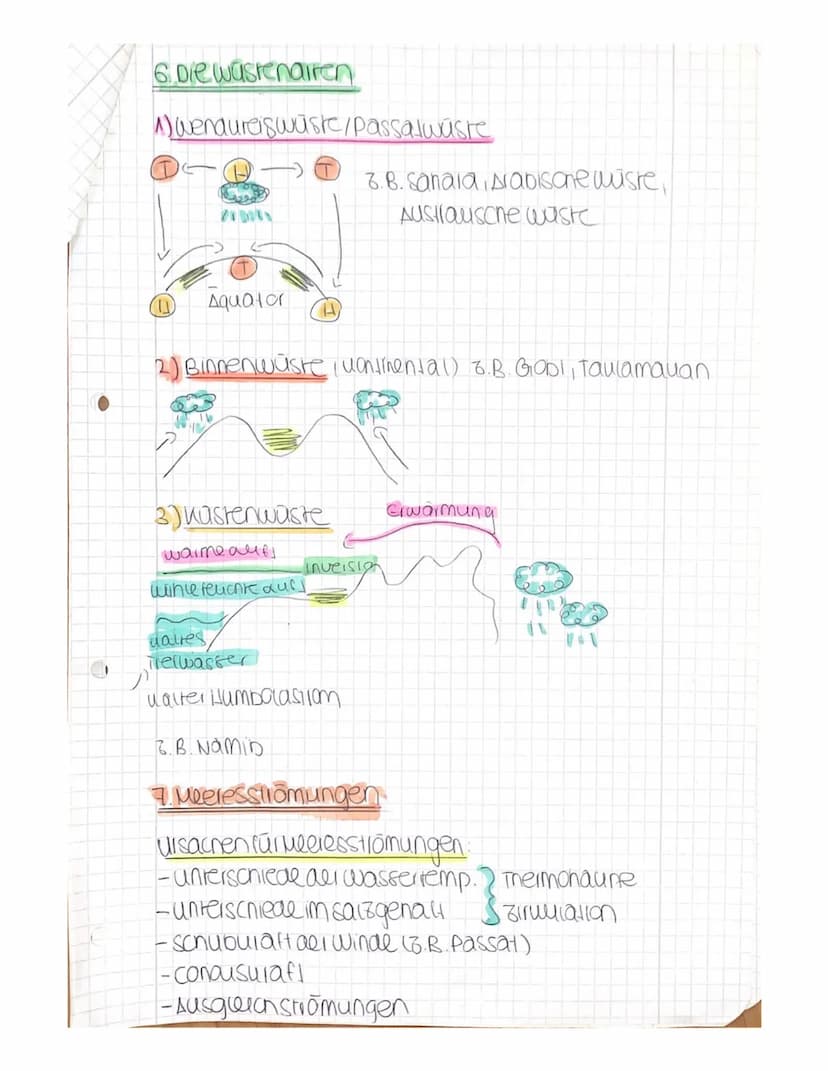 6. Die Wüstenarten
1) Wendekreiswüste/Passatwüste
T H T
z.B. Sahara, Arabische Wüste,
Australische Wüste
T
H Äquator H
2) Binnenwüste (kontinental) z.B. Gobi, Taklamakan
3) Küstenwüste
Erwärmung
warme Luft
Inversion
kühle feuchte Luft
kaltes
Tiefwasser
kalter Humboldtstrom
z.B. Namib
7. Meeresströmungen
Ursachen für Meeresströmungen:
- Unterschiede der Wassertemp. } Thermohaline
- Unterschiede im Salzgehalt } Zirkulation
- Schubkraft der Winde (z.B. Passat)
- Corioliskraft
- Ausgleichströmungen